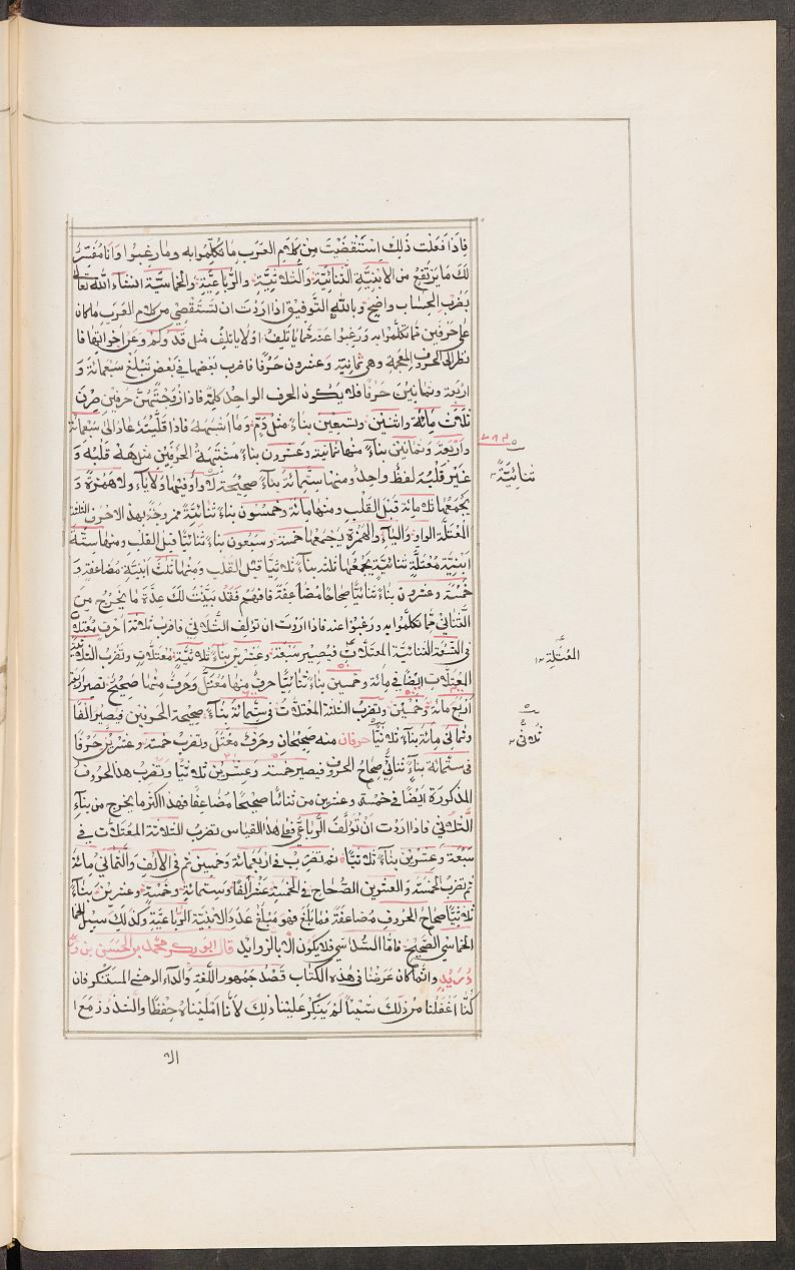 فاذا فعلت ذلك استقصيت من كلام العرب ما تكلموا به وما رغبوا وانا مفسر
لك ما يرتفع من الابنية الثنائية والثلاثية والرباعية والخماسية انشاء الله تعالى
بضرب الحساب واضح وبالله التوفيق اذا اردت ان تستقصي من كلام العرب ما كان
على حرفين مما تكلموا به ورغبوا عنه مما ياتلف او لا ياتلف مثل قد وكم وعن اخواتها فا
نظر الى الحروف المعجمة وهي ثمانية وعشرون حرفا فاضرب بعضها في بعض تبلغ سبعمائة و
اربعة وثمانين حرفا فلا يكون الحرف الواحد كلمة فاذا ازوجتهن حرفين صرن
ثلاث مائة واثنين وتسعين بناء مثل دم وما اشبهه فاذا قلبته عاد الى سبعمائة
واربعة وثمانين بناء منها ثمانية وعشرون بناء مشتبهة الحرفين مثل هه قلبه و
غير قلبه لفظ واحد ومنها ستمائة بناء صحيحة لا واو فيها ولا ياء ولا همزة و
يجمعها ثلاثمائة قبل القلب ومنها مائة وخمسون بناء ثنائية ممزوجة بهذ الاحرف الثلثة
المعتلة الواو والياء والهمزة يجمعها خمسة وسبعون بناء ثنائيا قبل القلب ومنها ستة
ابنية معتلة ثنائية يجمعها ثلثه بناء ثلاثيا قبل القلب ومنها ثلث ابنية مضاعفة و
خمسة وعشرون بناء ثنائيا صحاحا مضاعفة فافهم فقد بينت لك عدة ما يخرج من
الثنائي مما تكلموا به ورغبوا عنه فاذا اردت ان تولف الثلاثي فاضرب ثلاثة احرف معتلات
في التسعة الثنائية المعتلات فيصير سبعة وعشرين بناء ثلاثية معتلات وتضرب الثلاثة
المعتلات ايضا في مائة وخمسين بناء ثنائيا حرف منها معتل وحرف منها صحيح تصير اربع
اربع مائة وخمسين وتضرب الثلثة المعتلات في ستمائة بناء صحيحة الحرفين فيصير الفا
وثماني مائة بناء ثلاثيا حرفان منه صحيحان وحرف معتل وتضرب خمسة وعشرين حرفا
في ستمائة بناء ثنائي صحاح الحروف فيصير خمسة وعشرين ثلاثيا وتضرب هذ الحروف
المذكورة ايضا في خمسة وعشرين من ثنائيا صحيحا مضاعفا فهذ اكثر ما يخرج من بناء
الثلاثي فاذا اردت ان تولف الرباعي فعلى هذا القياس تضرب الثلاثة المعتلات في
سبعة وعشرين بناء ثلاثيا ثم تضرب في اربعمائة وخمسين ثم في الالف والثماني مائة
ثم تضرب الخمسة والعشرين الصحاح في الخمسة عشر الفا وستمائة وخمسة وعشرين بناء
ثلاثيا صحاح الحروف مضاعفة فما بلغ فهو مبلغ عدد الابنية الرباعية وكذلك سبيل الخما
الخماسي الصحيح فاما السداسي فلا يكون الا بالزوايد قال ابو بكر محمد بن الحسن بن
دريد وانما كان غرضنا في هذه الكتاب قصد جمهور اللغة والغاء الوحشي المستنكر فان
كنا اغفلنا من ذلك شيئا لم ينكر علينا ذلك لانا امليناه حفظا والشذوذ مع ا
الا
ثنائية
المعتلة
ثلاثي